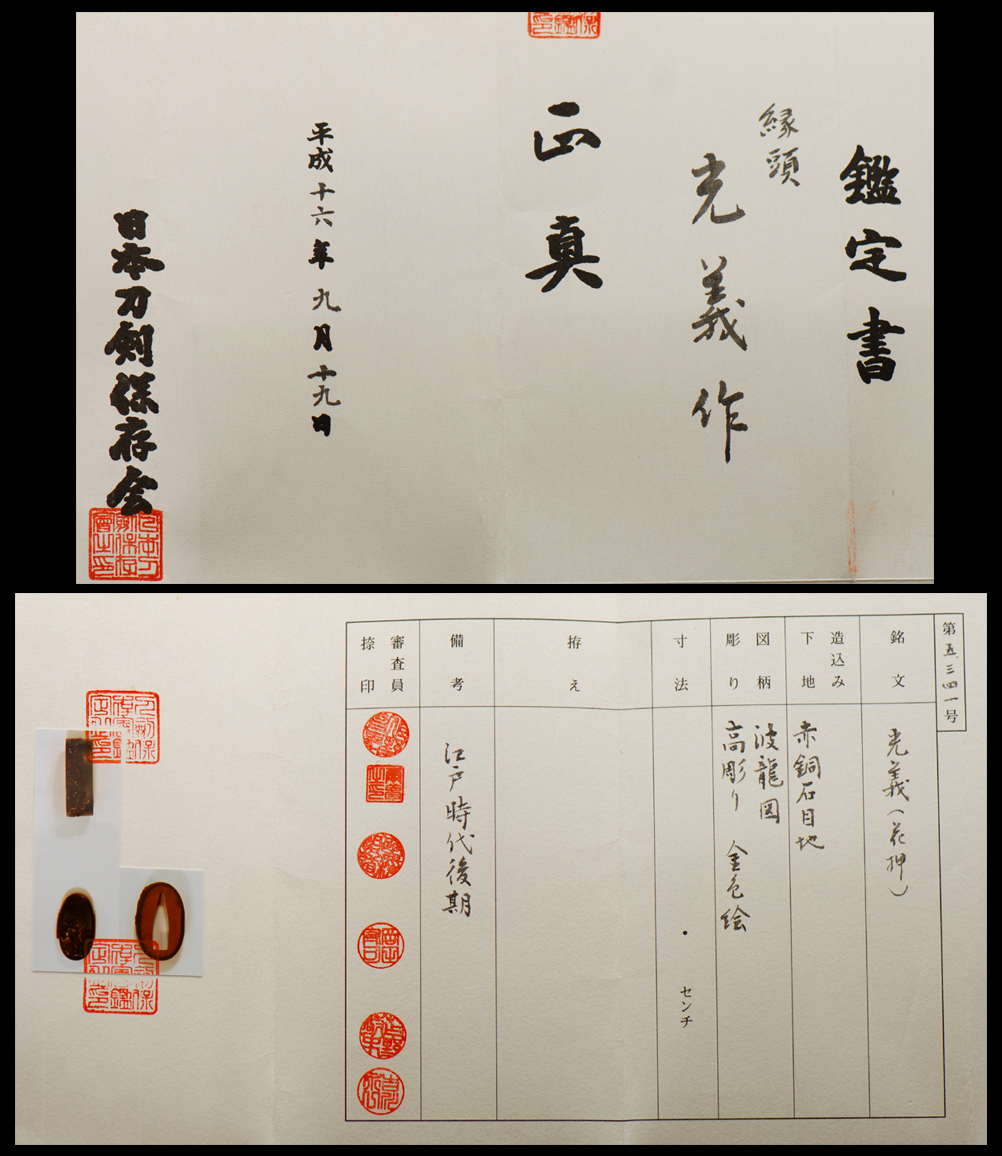 鑑定書
縁頭
光義作
正真
平成十六年九月十九日
日本刀剣保存会
第五三四一号
銘文
光義(花押)
造込み
下地
赤銅石目地
図柄
彫り
波龍図
高彫り 金色絵
寸法
・ センチ
拵え
備考
江戸時代後期
審査員
捺印